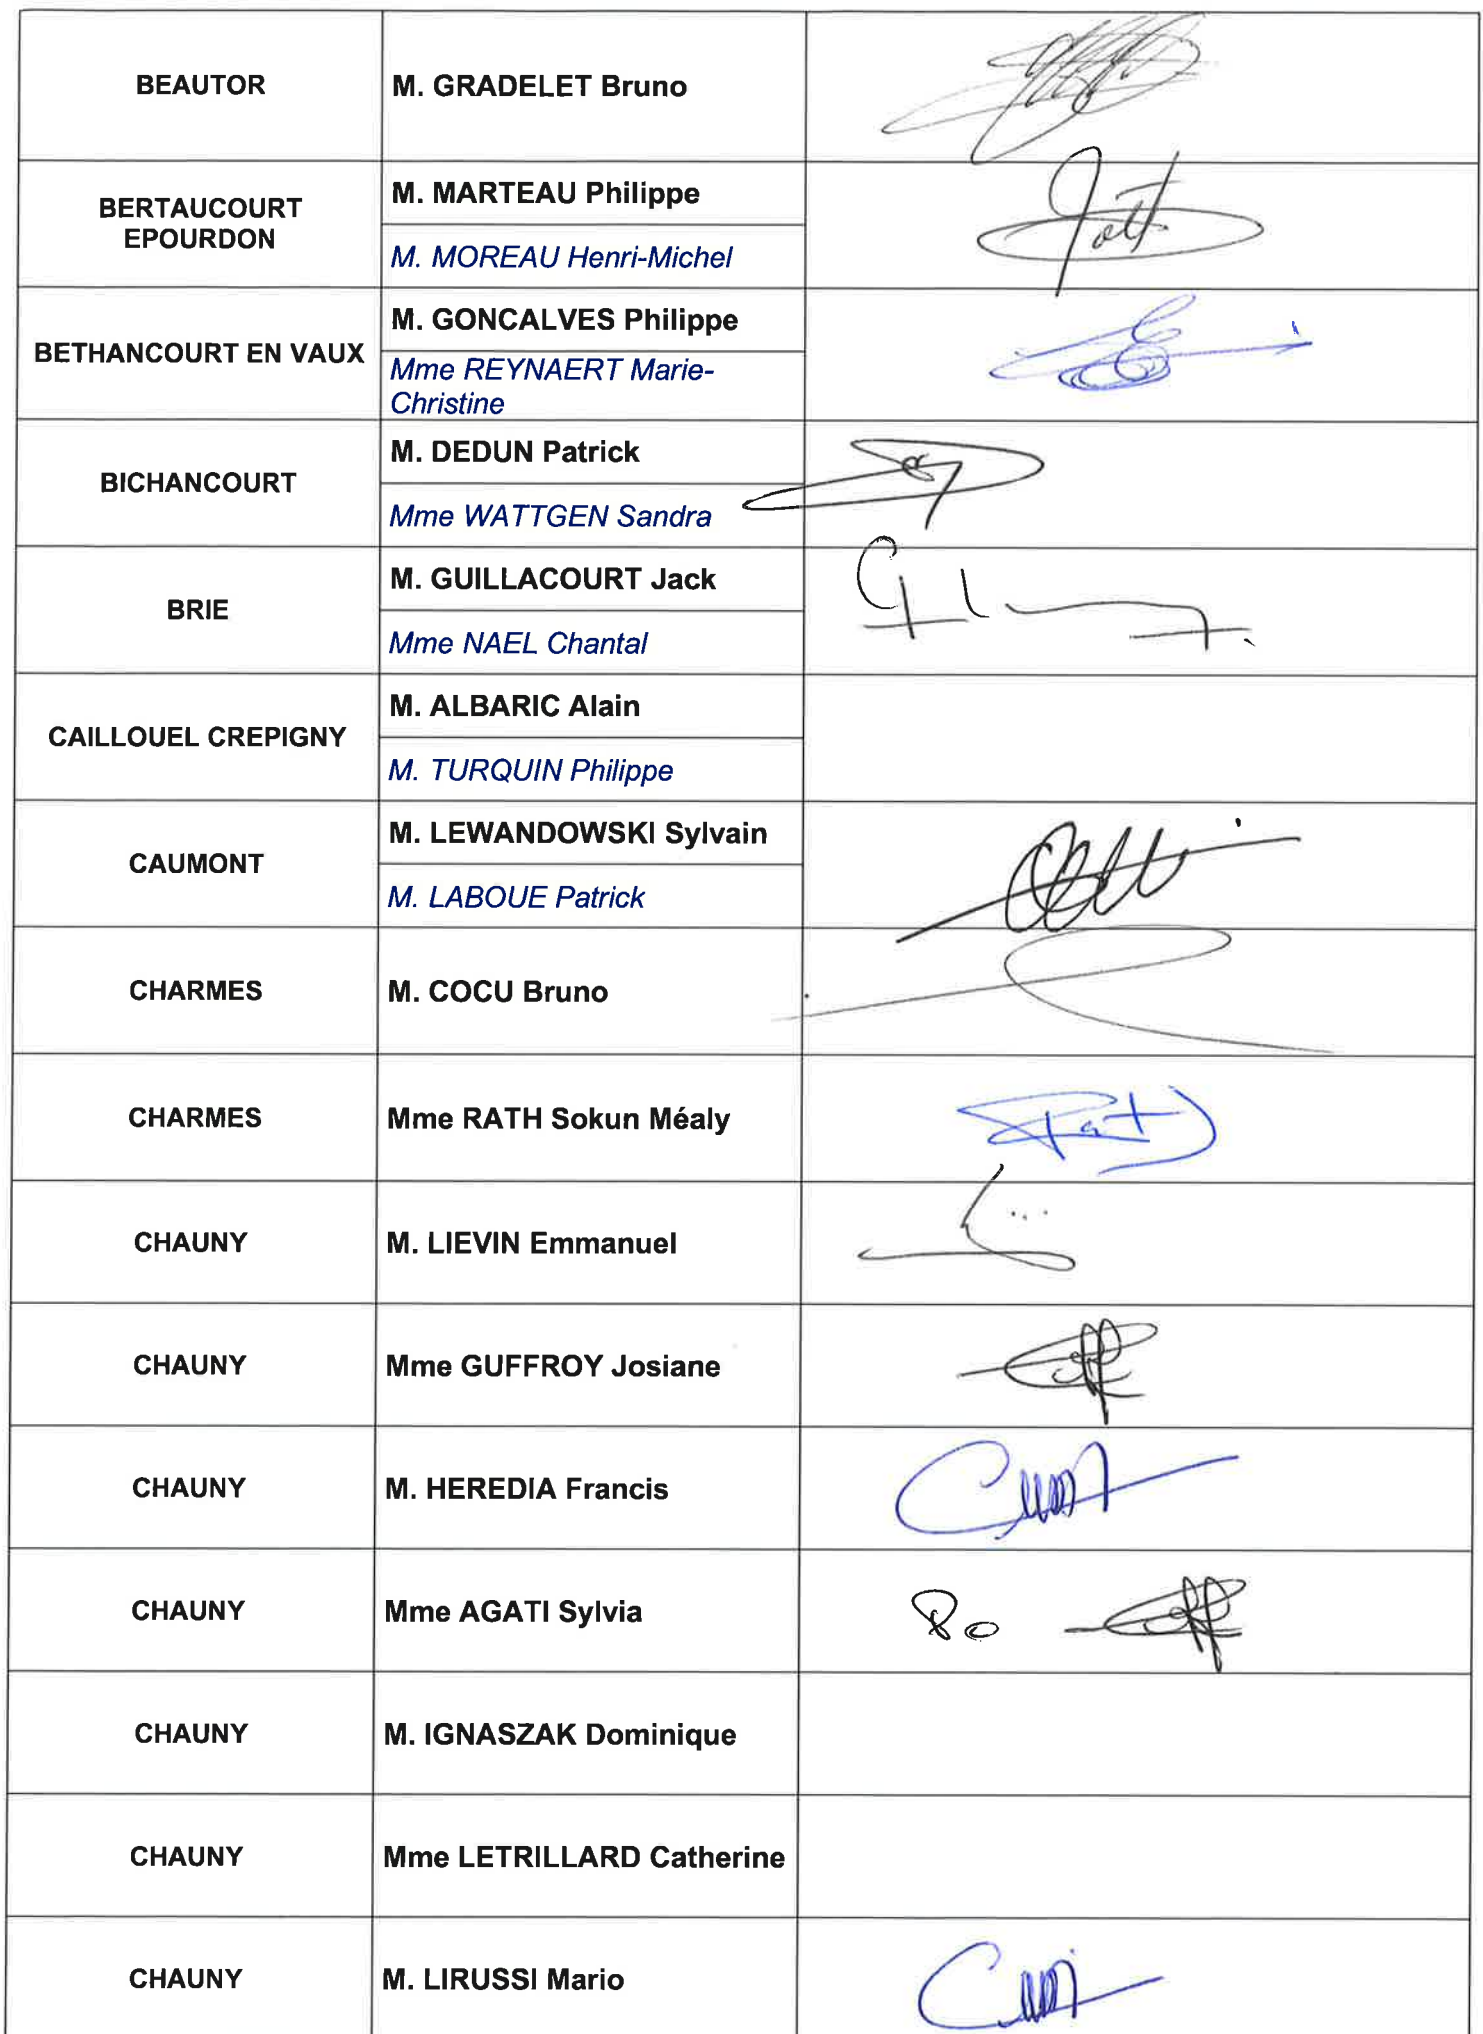 BEAUTOR
M. GRADELET Bruno
BERTAUCOURT
EPOURDON
M. MARTEAU Philippe
M. MOREAU Henri-Michel
BETHANCOURT EN VAUX
M. GONCALVES Philippe
Mme REYNAERT Marie-
Christine
BICHANCOURT
M. DEDUN Patrick
Mme WATTGEN Sandra
BRIE
M. GUILLACOURT Jack
Mme NAEL Chantal
CAILLOUEL CREPIGNY
M. ALBARIC Alain
M. TURQUIN Philippe
CAUMONT
M. LEWANDOWSKI Sylvain
M. LABOUE Patrick
CHARMES
M. COCU Bruno
CHARMES
Mme RATH Sokun Méaly
CHAUNY
M. LIEVIN Emmanuel
CHAUNY
Mme GUFFROY Josiane
CHAUNY
M. HEREDIA Francis
CHAUNY
Mme AGATI Sylvia
Po
CHAUNY
M. IGNASZAK Dominique
CHAUNY
Mme LETRILLARD Catherine
CHAUNY
M. LIRUSSI Mario